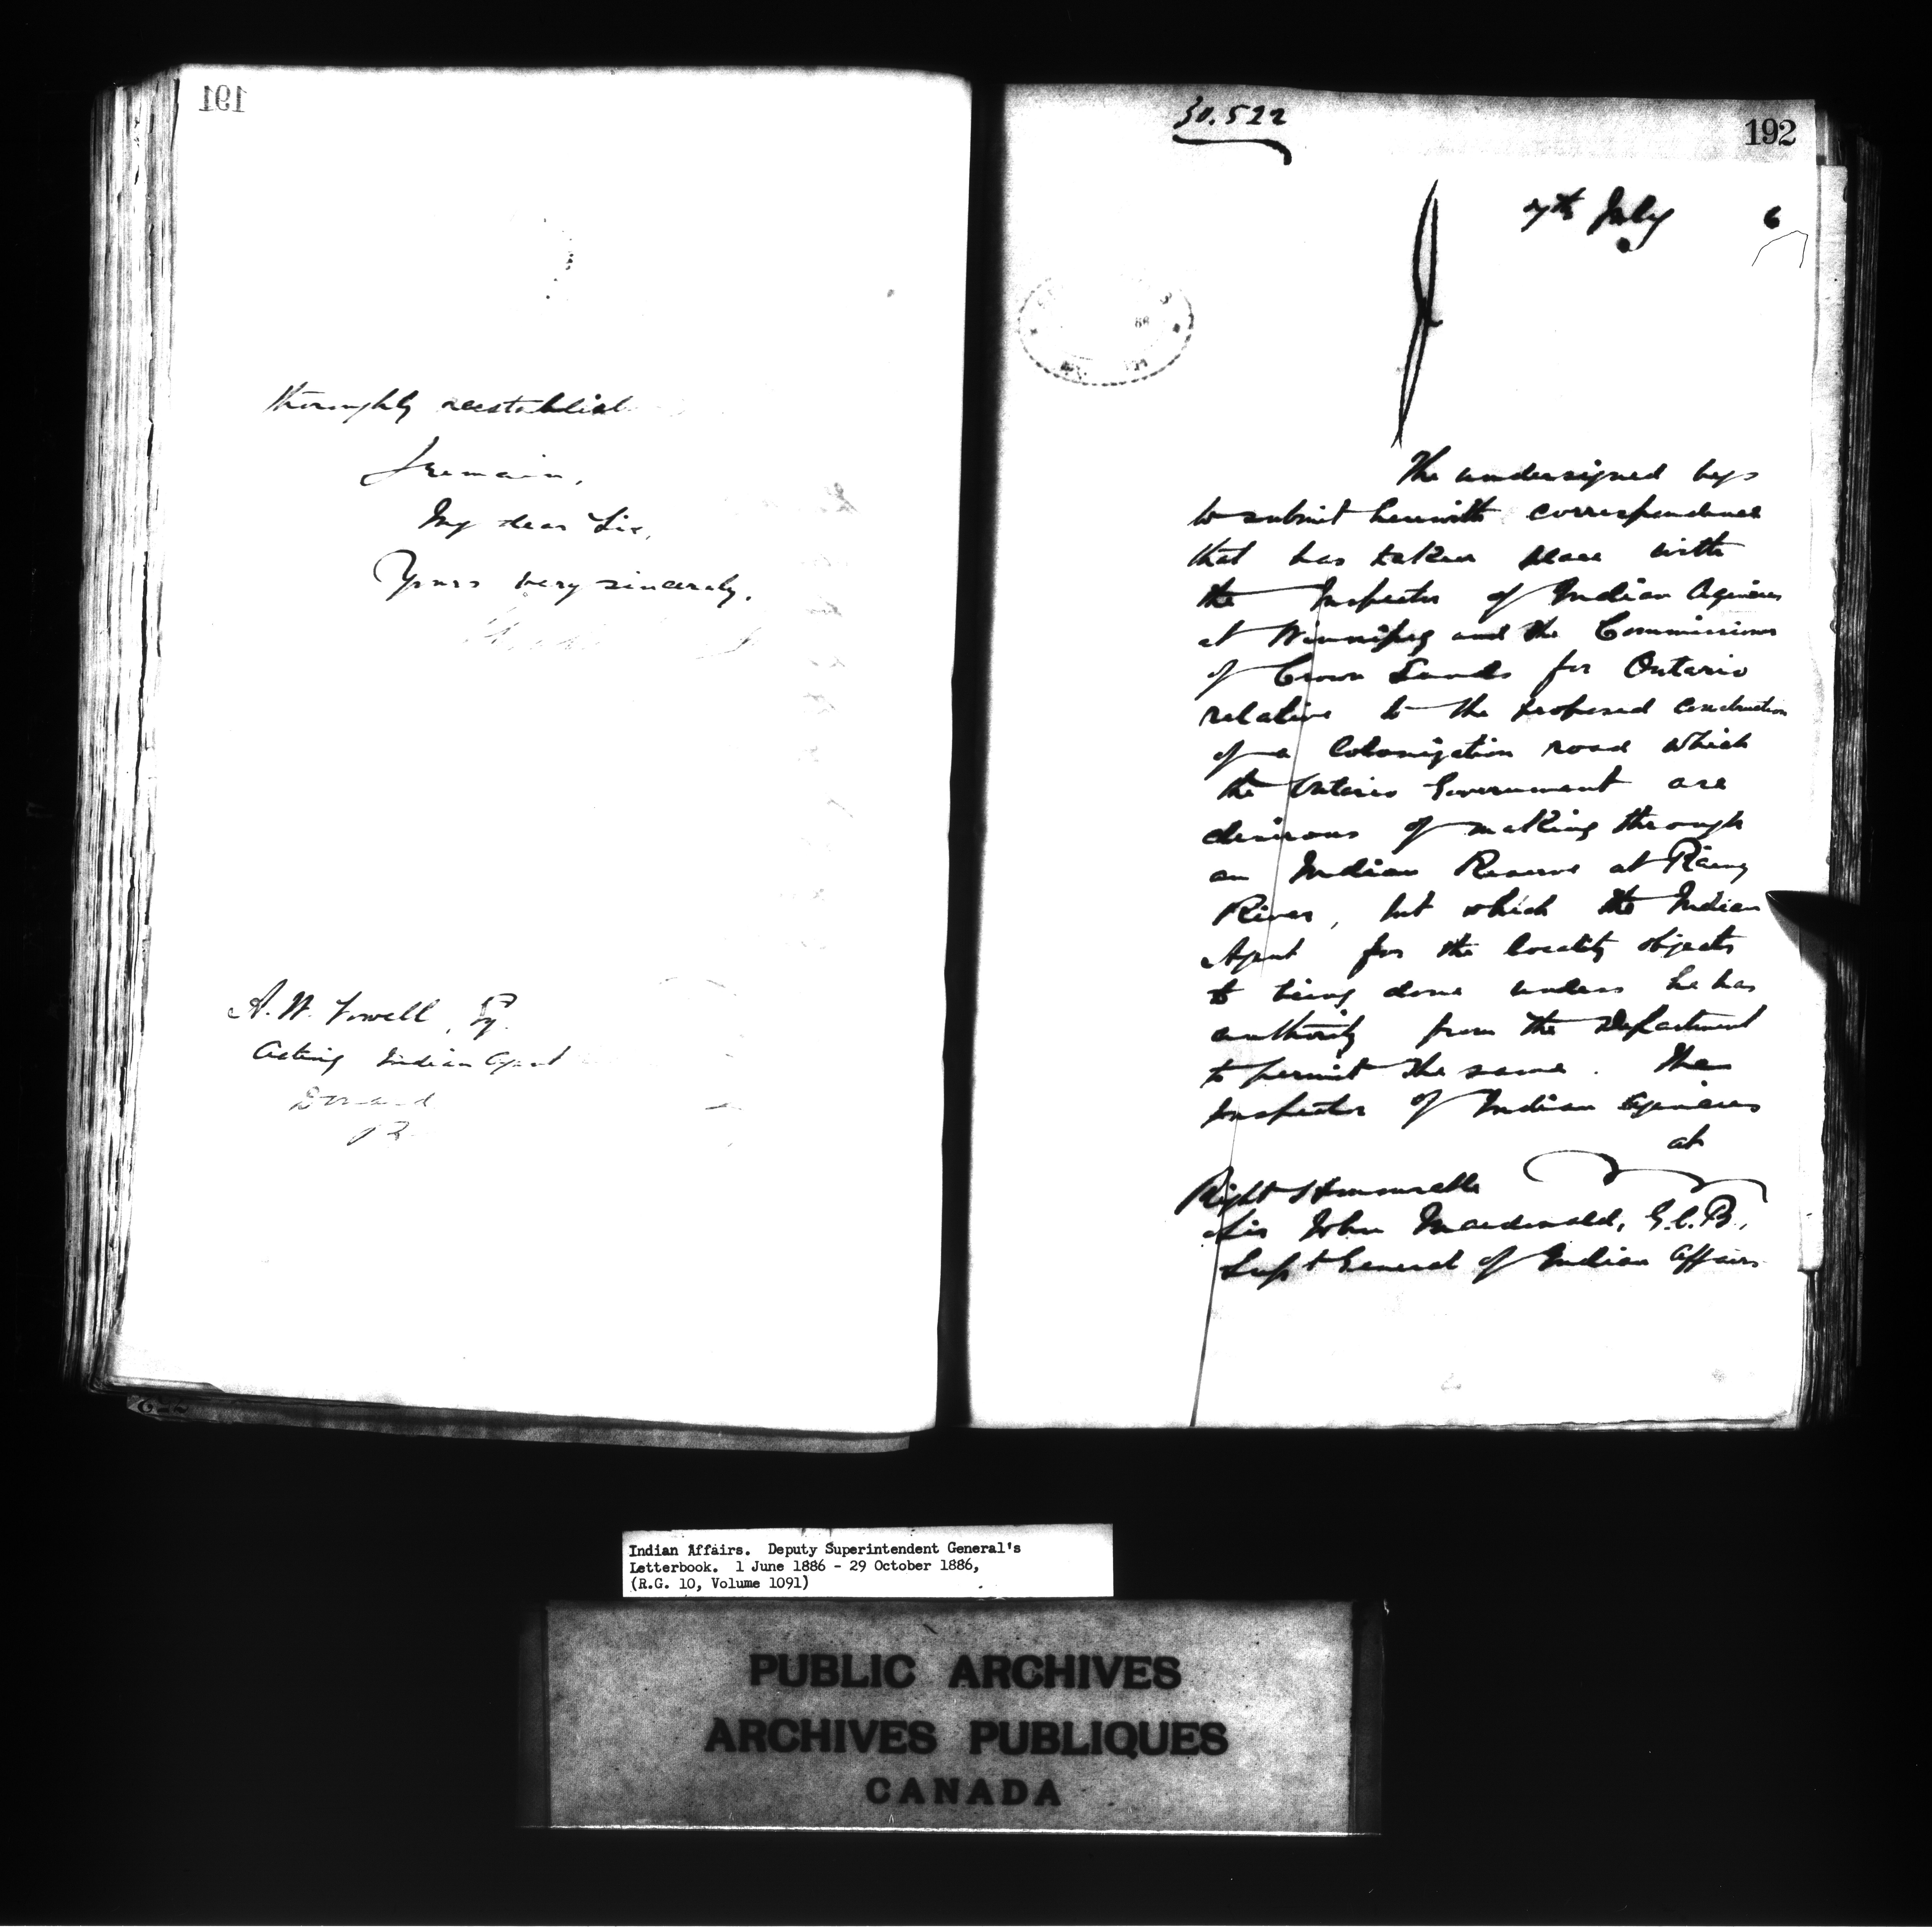 191
thoroughly reestablish
I remain,
My dear Sir,
Yours very sincerely,
A. W. Powell, Esq.
Acting Indian Agent
30.522
192
7th July 6
86
The undersigned begs
to submit herewith correspondence
that has taken place with
the Inspector of Indian Agencies
at Winnipeg and the Commissioner
of Crown Lands for Ontario
relative to the proposed construction
of a Colonization road which
the Ontario Government are
desirous of making through
an Indian Reserve at Rainy
River, but which the Indian
Agent for the locality objects
to being done unless he has
authority from the Department
to permit the same. The
Inspector of Indian Agencies
at
Right Honourable
Sir John Macdonald, G.C.B.,
Supt General of Indian Affairs
Indian Affairs. Deputy Superintendent General's
Letterbook. 1 June 1886 - 29 October 1886,
(R.G. 10, Volume 1091)
PUBLIC ARCHIVES
ARCHIVES PUBLIQUES
CANADA